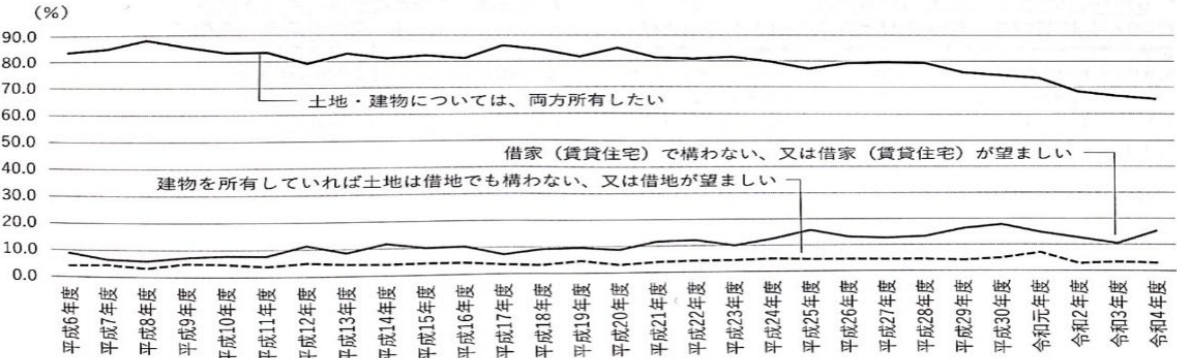 (%)
90.0
80.0
70.0
60.0
50.0
40.0
30.0
20.0
10.0
0.0
土地・建物については、両方所有したい
借家(賃貸住宅)で構わない、又は借家(賃貸住宅)が望ましい
建物を所有していれば土地は借地でも構わない、又は借地が望ましい
平成6年度
平成7年度
平成8年度
平成9年度
平成10年度
平成11年度
平成12年度
平成13年度
平成14年度
平成15年度
平成16年度
平成17年度
平成18年度
平成19年度
平成20年度
平成21年度
平成22年度
平成23年度
平成24年度
平成25年度
平成26年度
平成27年度
平成28年度
平成29年度
平成30年度
令和元年度
令和2年度
令和3年度
令和4年度